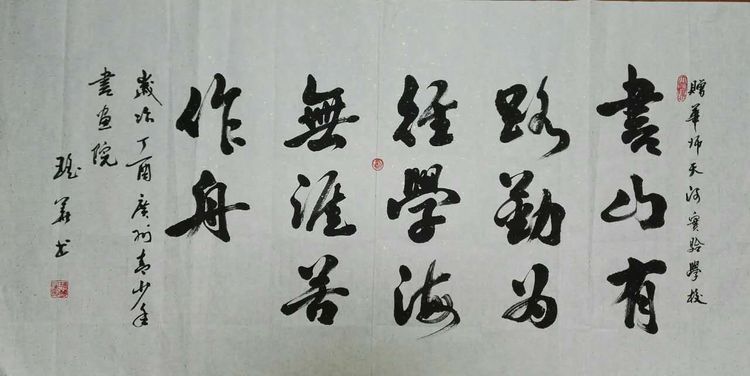 贈華師天河實驗學校
書山有
路勤为
徑學海
無涯苦
作舟
歲次丁酉廣州青少年
書畫院